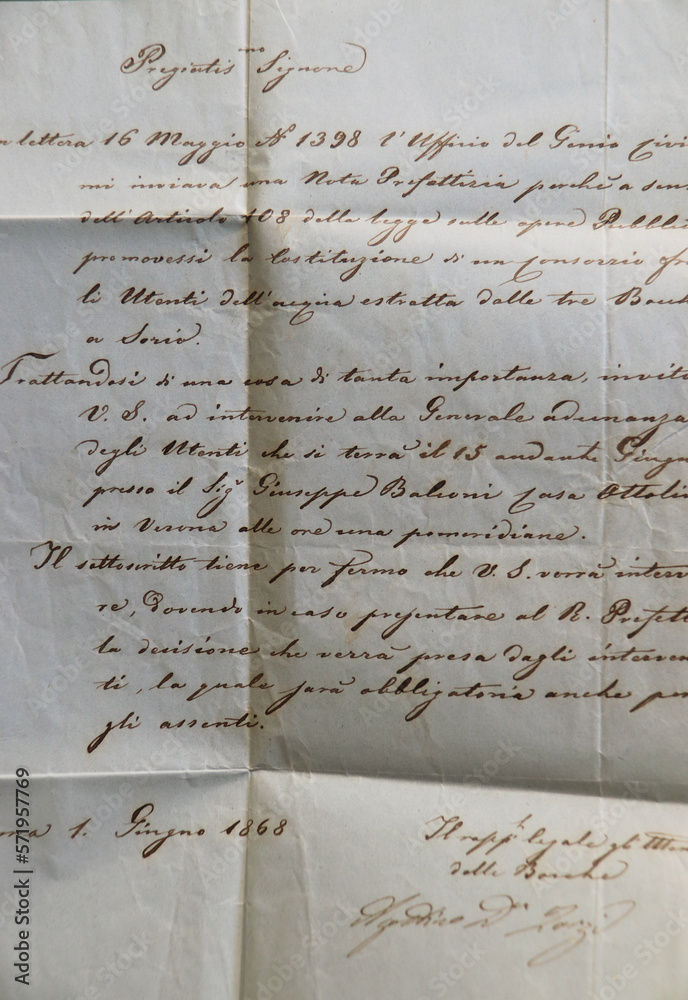 Pregiatis.mo Signore
lettera 16 Maggio No 1398 l'Ufficio del Genio Civi
mi inviava una Nota Prefettizia perchè a sen
dell'Articolo 108 della legge sulle opere Pubbli
promovessi la Costituzione di un Consorzio fra
li Utenti dell'acqua estratta dalle tre Bocch
a Sorio.
Trattandosi di una cosa di tanta importanza, invito
V. S. ad intervenire alla Generale adunanza
degli Utenti che si terrà il 15 andante Giugn
presso il Sigr Giuseppe Balconi Casa Ottoli
in Verona alle ore una pomeridiane.
Il sottoscritto tiene per fermo che V. S. vorrà interv
re, dovendo in caso presentare al R. Prefett
la decisione che verrà presa dagli interven
ti, la quale sarà obbligatoria anche per
gli assenti.
1. Giugno 1868
Il rapp.te legale gli
delle Bocche
Adobe Stock | #571957769